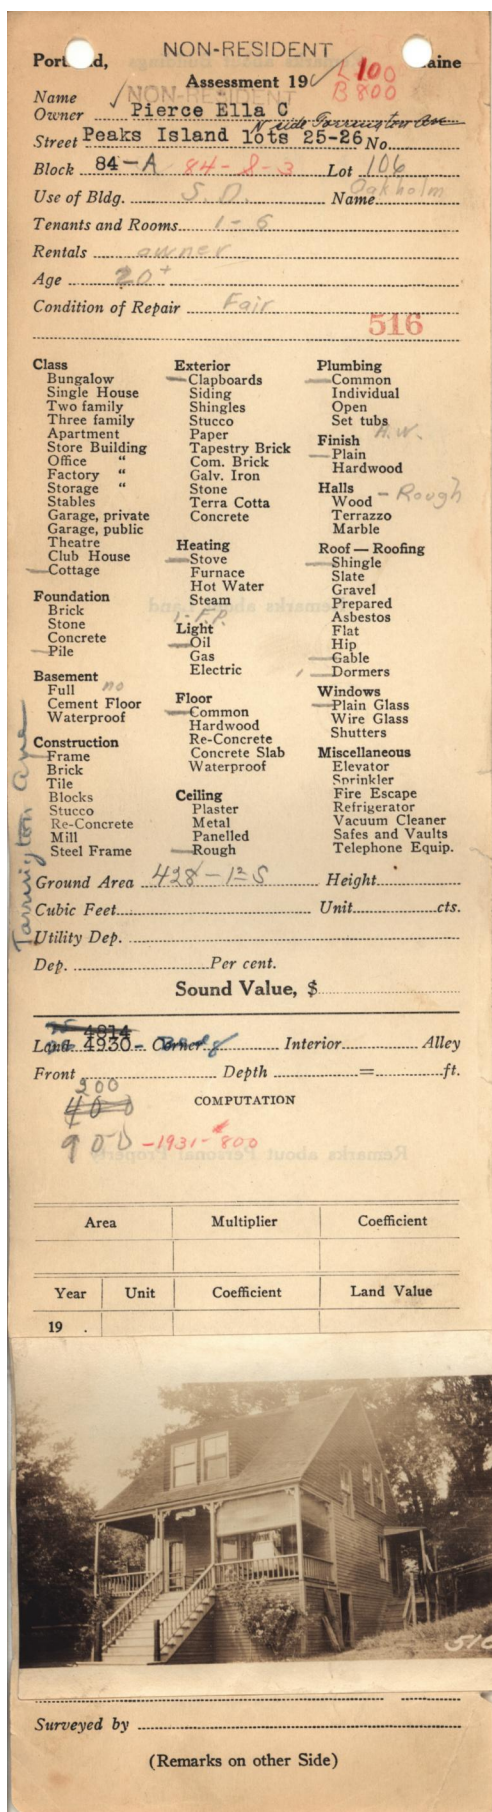 NON-RESIDENT
Portland, Maine
L 100
Assessment 19
B 800
NON-RESIDENT
Name
Owner Pierce Ella C
N side Torrington Ave
Street Peaks Island lots 25-26 No.
Block 84-A 84-8-3 Lot 106
Use of Bldg. S.D. Name Oakholm
Tenants and Rooms 1-6
Rentals owner
Age 20+
Condition of Repair Fair
516
Class
Bungalow
Single House
Two family
Three family
Apartment
Store Building
Office "
Factory "
Storage "
Stables
Garage, private
Garage, public
Theatre
Club House
Cottage
Foundation
Brick
Stone
Concrete
Pile
Basement
Full no
Cement Floor
Waterproof
Construction
Frame
Brick
Tile
Blocks
Stucco
Re-Concrete
Mill
Steel Frame
Torrington Ave
Exterior
Clapboards
Siding
Shingles
Stucco
Paper
Tapestry Brick
Com. Brick
Galv. Iron
Stone
Terra Cotta
Concrete
Heating
Stove
Furnace
Hot Water
Steam
1-F.P.
Light
Oil
Gas
Electric
Floor
Common
Hardwood
Re-Concrete
Concrete Slab
Waterproof
Ceiling
Plaster
Metal
Panelled
Rough
Plumbing
Common
Individual
Open
Set tubs
H.W.
Finish
Plain
Hardwood
Halls
Wood - Rough
Terrazzo
Marble
Roof — Roofing
Shingle
Slate
Gravel
Prepared
Asbestos
Flat
Hip
Gable
1 Dormers
Windows
Plain Glass
Wire Glass
Shutters
Miscellaneous
Elevator
Sprinkler
Fire Escape
Refrigerator
Vacuum Cleaner
Safes and Vaults
Telephone Equip.
Ground Area 428 - 1½ S Height
Cubic Feet Unit cts.
Utility Dep.
Dep. Per cent.
Sound Value, $
4814
Land 4930- Corner Interior Alley
Front Depth = ft.
200
400
COMPUTATION
900 -1931- 800
Area Multiplier Coefficient
Year Unit Coefficient Land Value
19 .
516
Surveyed by
(Remarks on other Side)